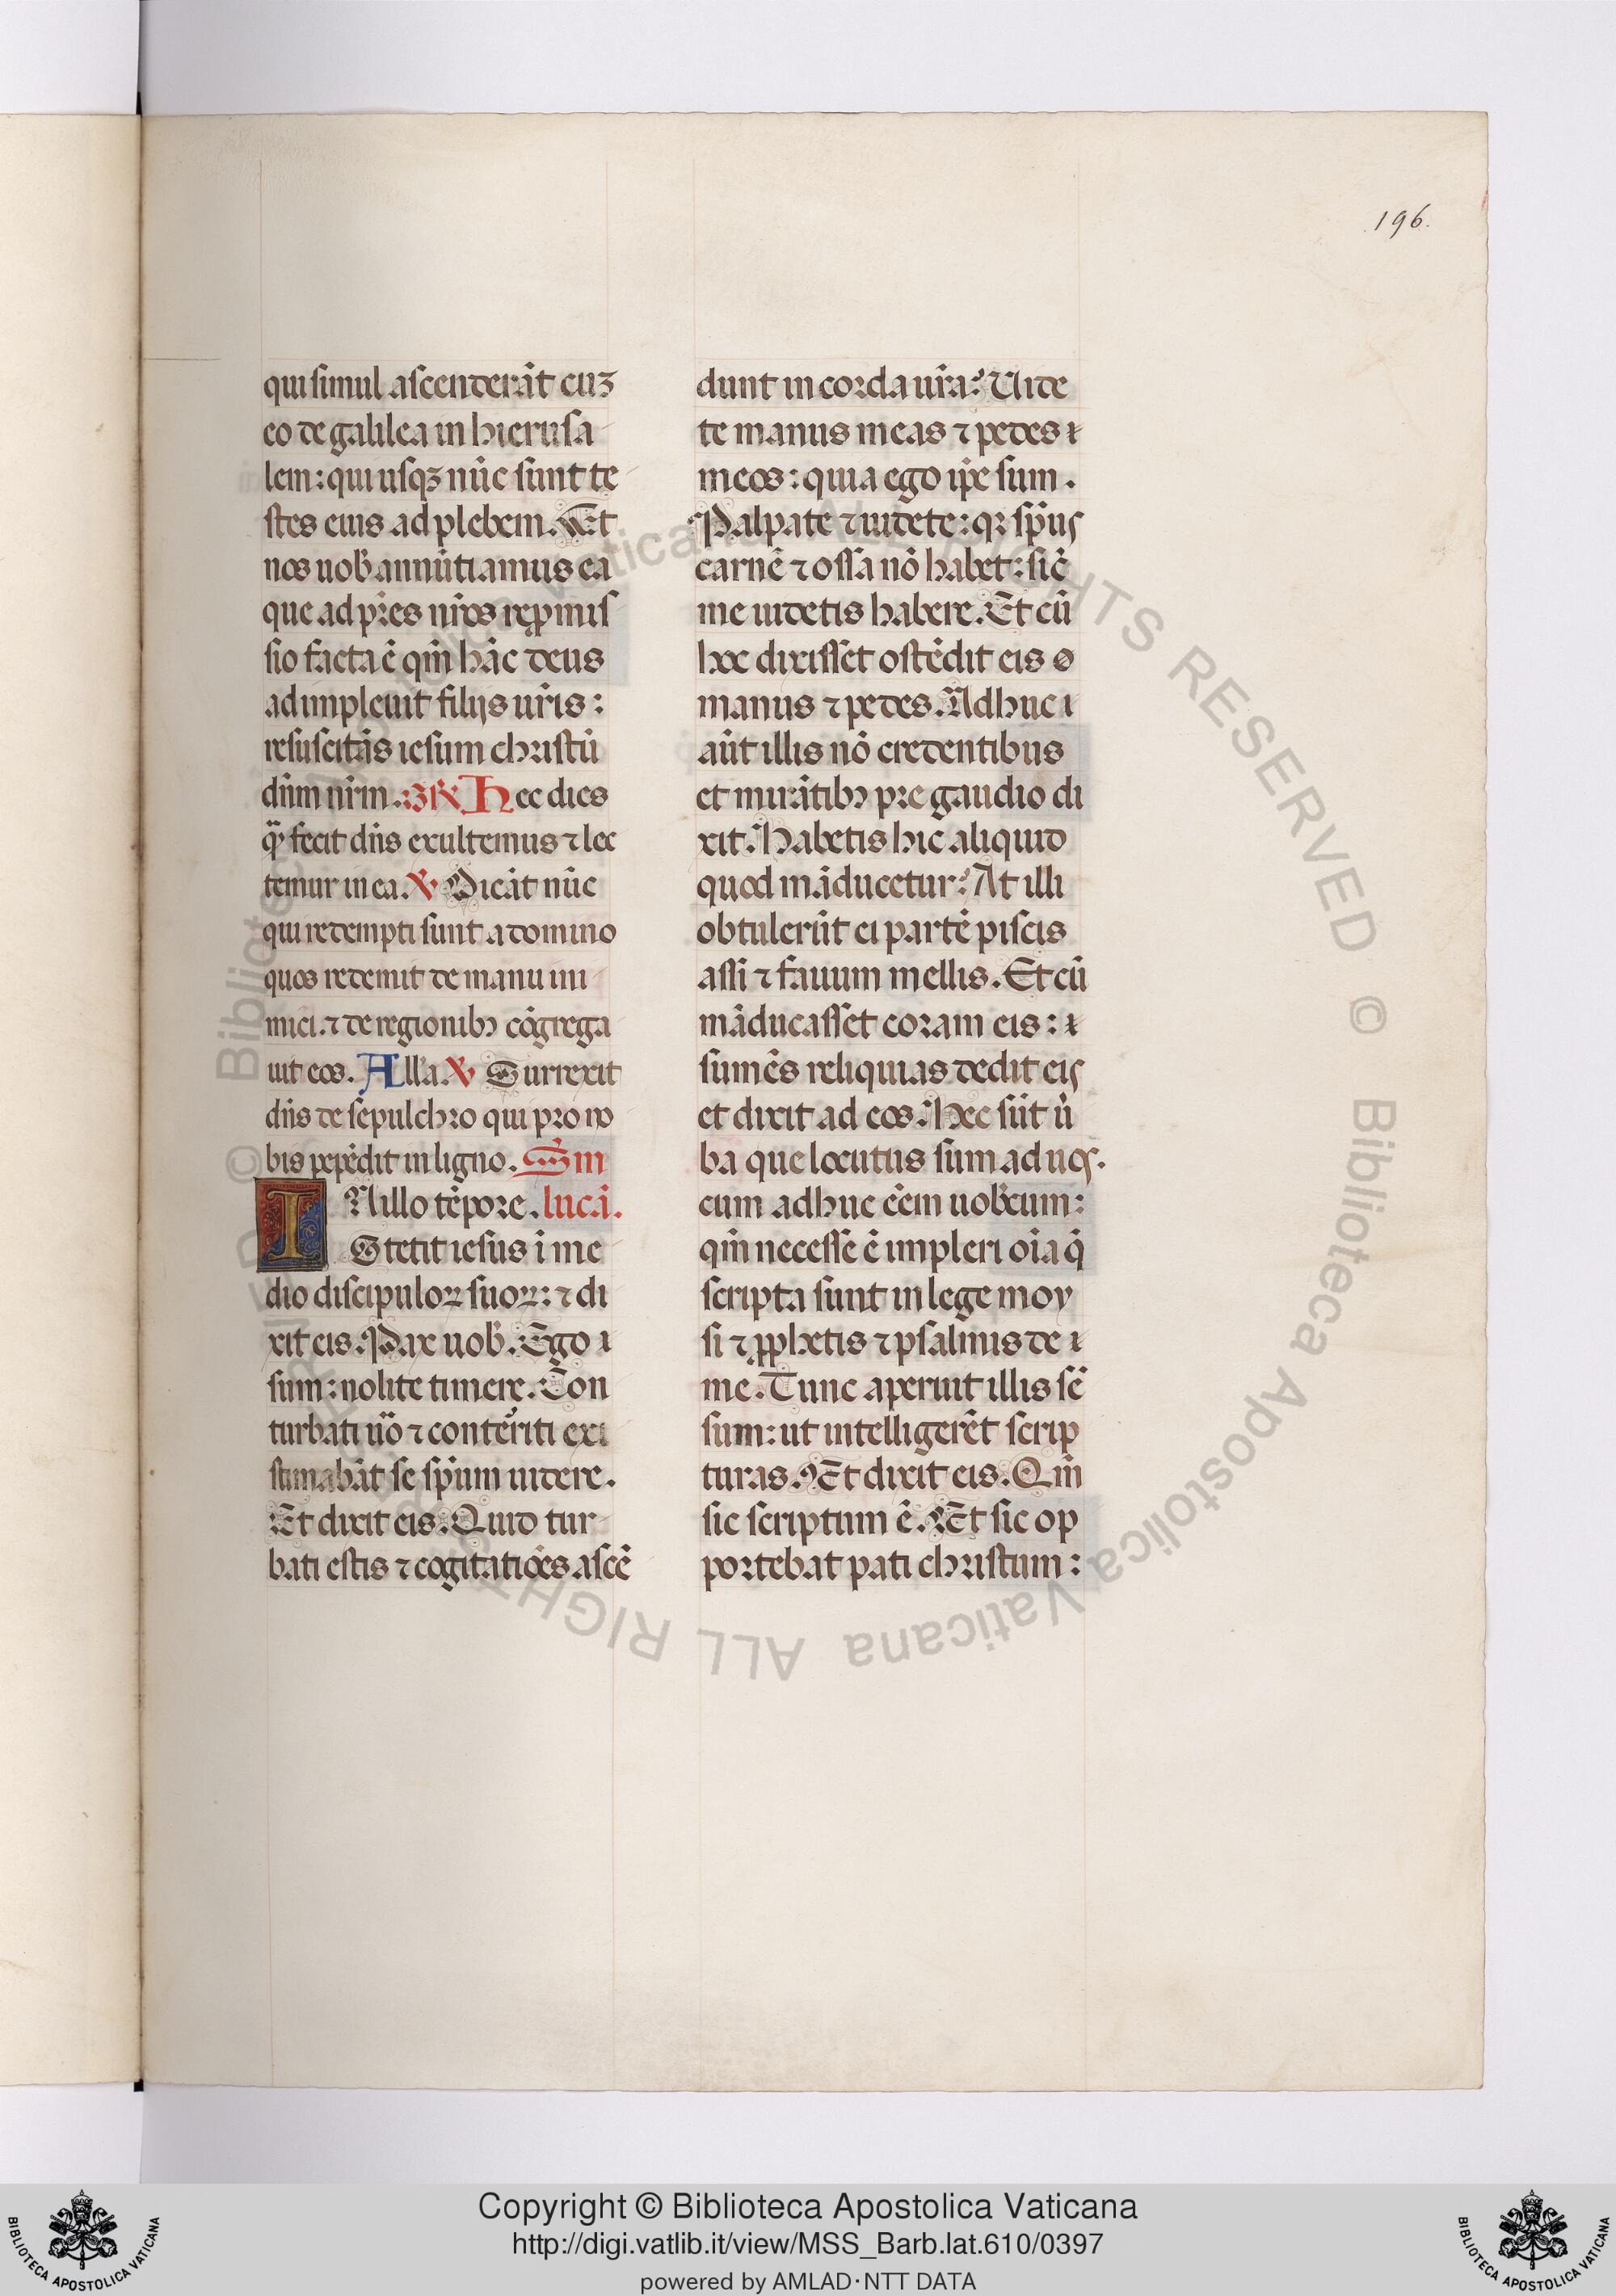 196.
qui simul ascenderāt cuꝫ
eo de galilea in hierusa
lem: qui usqꝫ nūc sunt te
stes eius ad plebem. Et
nos uob̄ annūtiamus ea
que ad pr̄es nr̄os repmis
sio facta ē qm̄ hāc deus
adimpleuit filijs ur̄is:
resuscitās iesum christū
dn̄m nr̄m. ℟ Hec dies
q̄ fecit dn̄s exultemus ⁊ lee
temur in ea. ℣ Dicāt nūc
qui redempti sunt a domino
quos redemit de manu ini
mici. ⁊ de regionibꝫ cōgrega
uit eos. All'a. ℣ Surrexit
dn̄s de sepulchro qui pro no
bis pepēdit in ligno. Sm̄
IN illo tēpore. lucā.
Stetit iesus ī me
dio discipuloꝝ suoꝝ: ⁊ di
xit eis. Pax uob̄. Ego
sum: nolite timere. Con
turbati uō ⁊ conterriti exi
stimabāt se sp̄um uidere.
Et dixit eis. Quid tur
bati estis ⁊ cogitatiōes ascē
dunt in corda ur̄a? Uide
te manus meas ⁊ pedes
meos: quia ego ip̄e sum.
Palpate ⁊ uidete: qꝛ sp̄us
carnē ⁊ ossa nō habet: sic̄
me uidetis habere. Et cū
hec dixisset ostēdit eis
manus ⁊ pedes. Adhuc
aūt illis nō credentibus
et mirātibꝫ pre gaudio di
xit. Habetis hic aliquid
quod māducetur? At illi
obtulerūt ei partē piscis
assi ⁊ fauum mellis. Et cū
māducasset coram eis:
sumēs reliquias dedit eis
et dixit ad eos. Hec sūt ū
ba que locutus sum ad uos.
cum adhuc eēm uob̄cum:
qm̄ necesse ē impleri oīa q̄
scripta sunt in lege moy
si ⁊ ꝓphetis ⁊ psalmis de
me. Tunc aperuit illis sē
sum: ut intelligerēt scrip
turas. Et dixit eis. Qm̄
sic scriptum ē. Et sic op
portebat pati christum:
© Biblioteca Apostolica Vaticana ALL RIGHTS RESERVED © Biblioteca Apostolica Vaticana ALL RIGHTS RESERVED
Copyright © Biblioteca Apostolica Vaticana
http://digi.vatlib.it/view/MSS_Barb.lat.610/0397
powered by AMLAD·NTT DATA
BIBLIOTECA APOSTOLICA VATICANA
BIBLIOTECA APOSTOLICA VATICANA